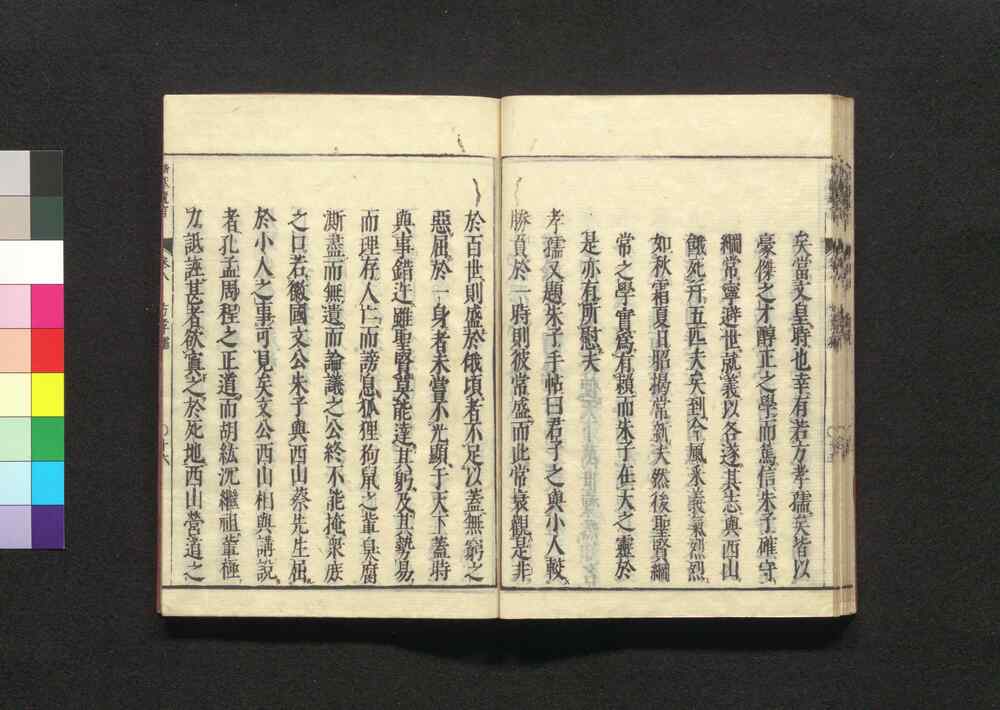 矣當文皇時也幸有若方孝孺矣皆以
豪傑之才醇正之學而篤信朱子確守
綱常寧遯世就義以各遂其志與西山
餓死幷五匹夫矣到今風釆義氣烈烈
如秋霜夏日昭揚常新夫然後聖賢綱
常之學實爲有頼而朱子在天之靈於
是亦有所慰夫
孝孺又題朱子手帖曰君子之與小人較
勝負於一時則彼常盛而此常衰觀是非
於百世則盛於俄頃者不足以蓋無窮之
惡屈於一身者未嘗不光顯于天下蓋時
與事錯迕雖聖賢莫能達其躬及其勢易
而理存人亡而謗息狐狸狗鼠之輩臭腐
澌盡而無遺而論議之公終不能掩衆庶
之口若徽國文公朱子與西山蔡先生屈
於小人之事可見矣文公西山相與講說
者孔孟周程之正道而胡紘沉繼祖輩極
力詆誣甚者欲寘之於死地西山營道之